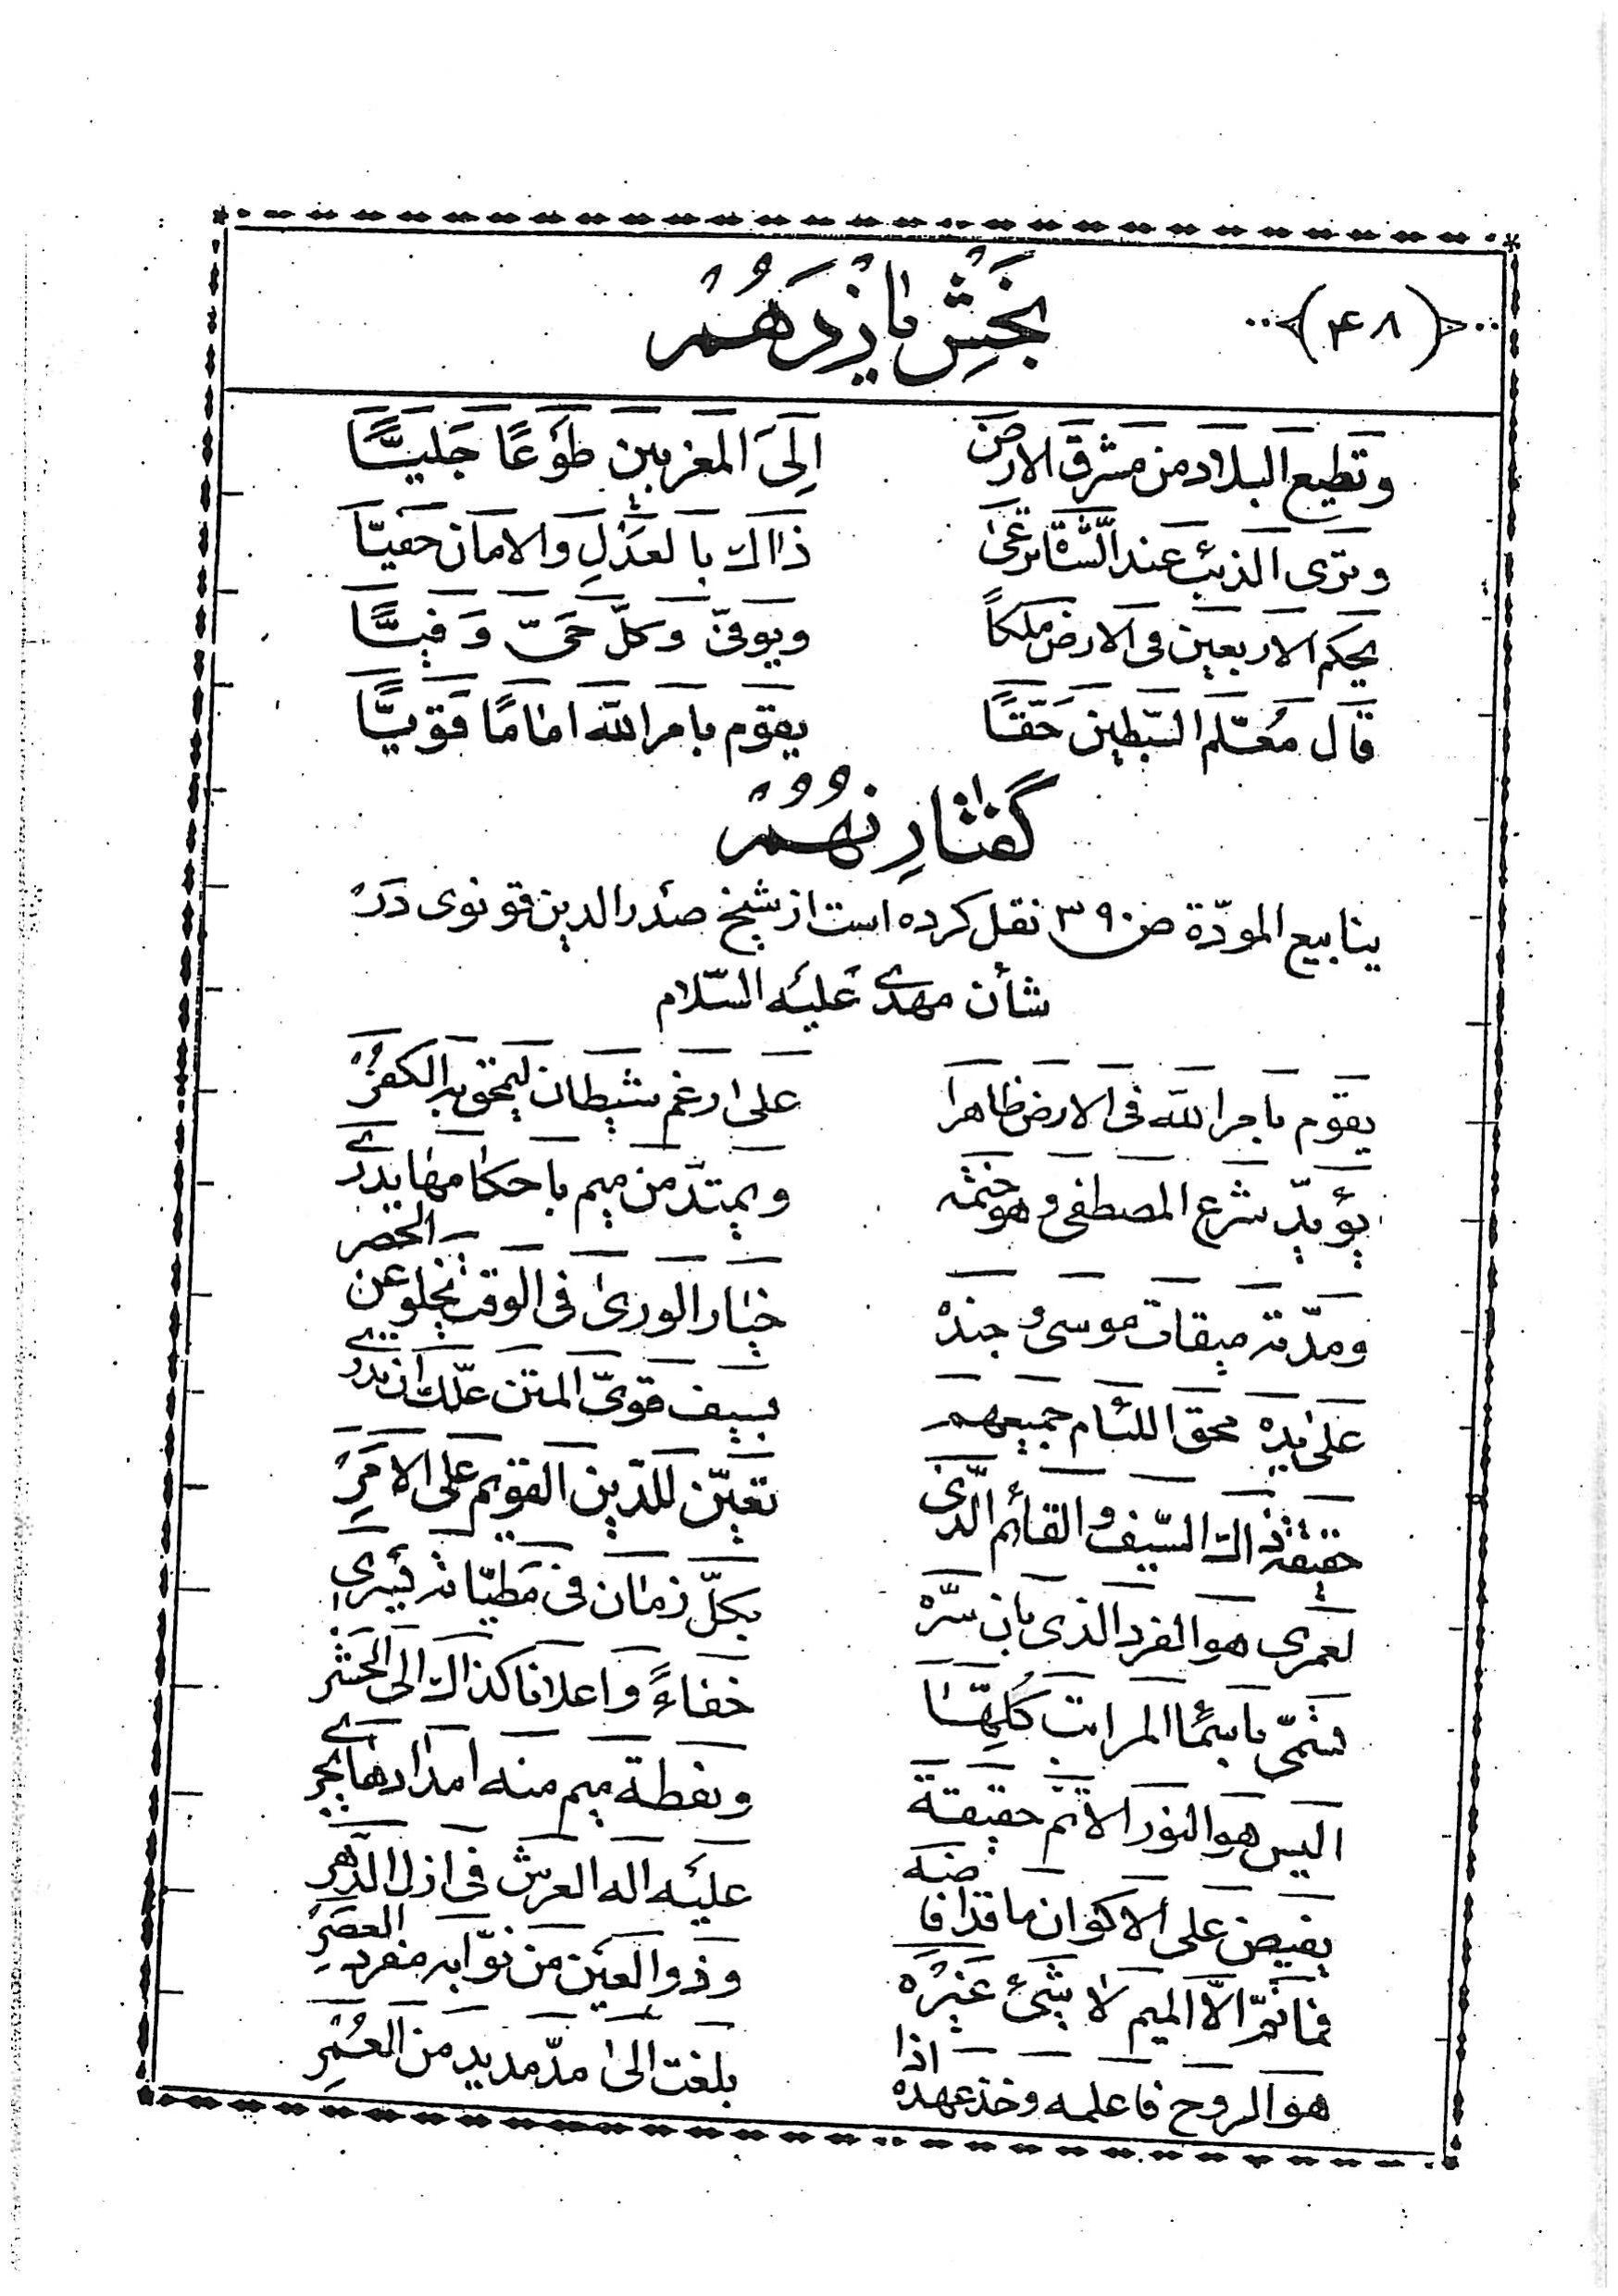 (۴۸)
بخش یازدهم
وتطیع البلاد من مشرق الارض الی المغربین طوعًا جلیًّا
وتری الذئب عند الشاة یرعی ذاك بالعدل والامان حفیّا
یحکم الاربعین فی الارض ملکاً ویوفی وکلّ حیّ وفیًّا
قال معلم السّبطین حقًّا یقوم بامر الله امامًا قویًّا
گفتارِ نهم
ینابیع المودّة ص ۳۹۰ نقل کرده است از شیخ صدرالدین قونوی در
شأن مهدی علیه السّلام
یقوم بامر الله فی الارض ظاهرا علی رغم شیطان لیمحق به الکفر
یؤیدّ شرع المصطفی وهو ختمه ویمتدّ من میم باحکامها یدری
ومدّته میقات موسی وجنده خیار الوری فی الوقت یخلو عن الحصر
علی یده محق اللئام جمیعهم بسیف قویّ المتن علّك ان تدری
حقیقة ذاك السّیف والقائم الّذی تعیّن للدّین القویم علی الامرِ
لعمری هو الفرد الذی بان سرّه بکلّ زمان فی مطیّاته یسری
تسمّی باسماء المراتب کلّها خفاءً واعلانا کذاك الی الحشر
الیس هو النور الاتم حقیقة ونقطة میم منه امدادها یجری
یفیض علی الاکوان ما قد افاضه علیه اله العرش فی ازل الدّهر
فما ثمّ الّا المیم لا شیئ غیره وذو العین من نوّابه مفرد العصر
هو الروح فاعلمه وخذ عهده اذا بلغت الی مدّ مدید من العمر